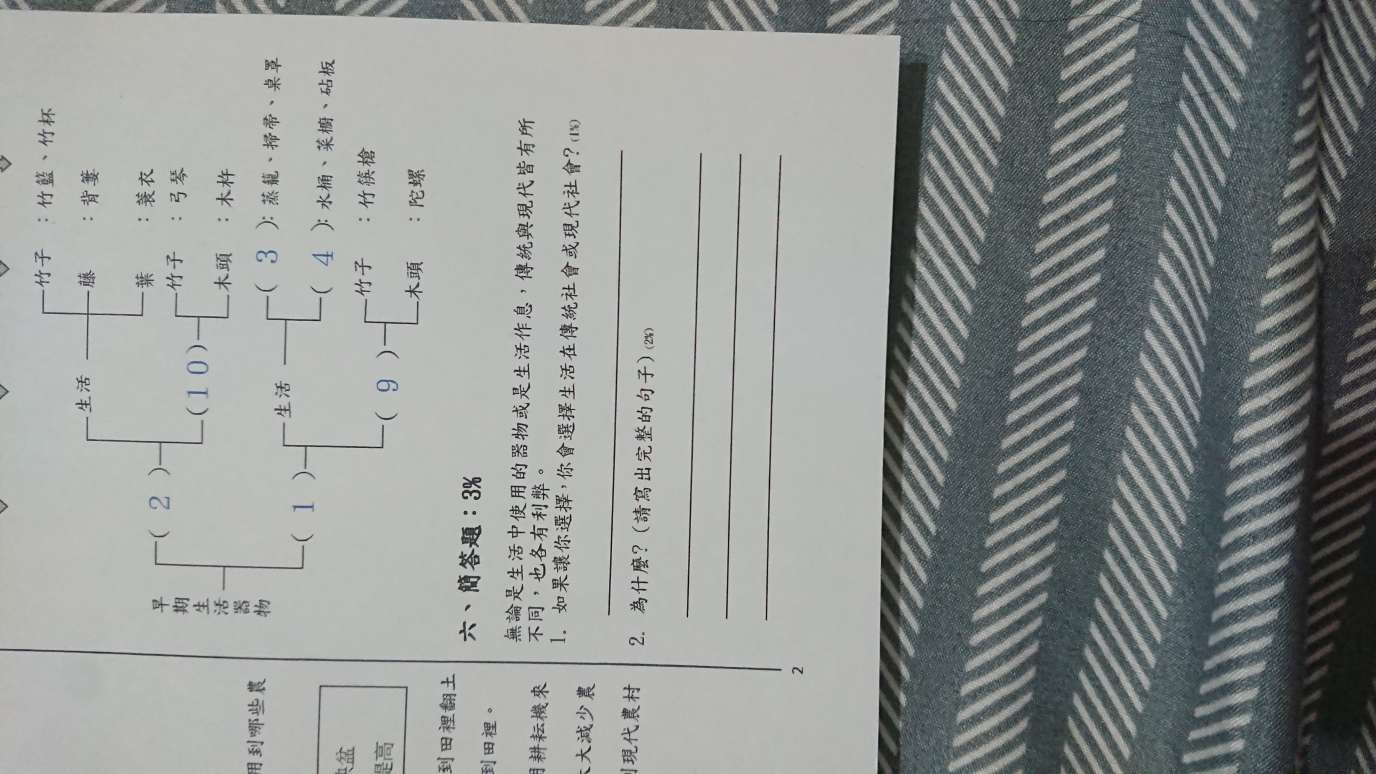 用到哪些農
是高
到田裡翻土
到田裡。
用耕耘機來
大減少農
現代農村
早期生活器物
( 2 )
生活
竹子：竹籃、竹杯
藤：背簍
葉：蓑衣
(10)
竹子：弓琴
木頭：木杵
( 1 )
生活
( 3 )：蒸籠、掃帚、桌罩
( 4 )：水桶、菜櫥、砧板
( 9 )
竹子：竹筷槍
木頭：陀螺
六、簡答題：3%
無論是生活中使用的器物或是生活作息，傳統與現代皆有所
不同，也各有利弊。
1. 如果讓你選擇，你會選擇生活在傳統社會或現代社會？(1%)
2. 為什麼？(請寫出完整的句子)(2%)
2